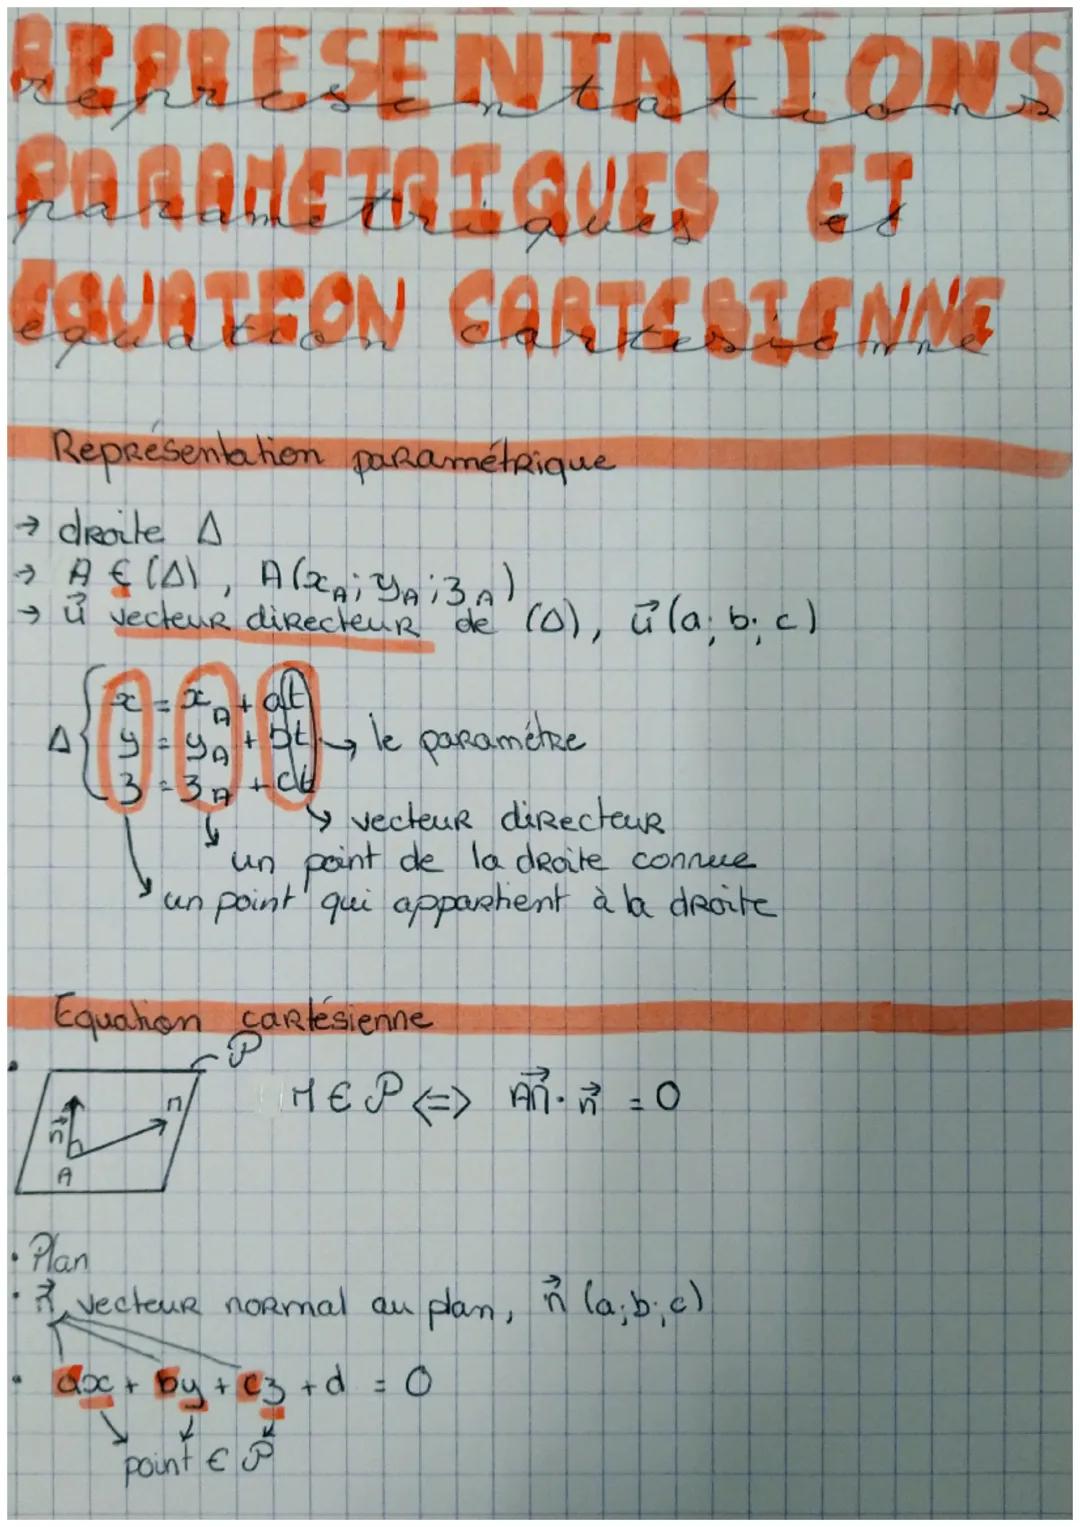 REPRESENTATIONS
representations
PARAMETRIQUES ET
parametriques et
EQUATION CARTESIENNE
equation cartesienne
Représentation paramétrique
→ droite Δ
→ A ∈ (Δ), A(x_A; y_A; z_A)
→ u⃗ vecteur directeur de (Δ), u⃗ (a; b; c)
x = x_A + at
Δ { y = y_A + bt → le paramètre
z = z_A + ct
↳ vecteur directeur
un point de la droite connue
un point qui appartient à la droite
Equation cartésienne
P
M ∈ P <=> AM⃗ · n⃗ = 0
n⃗ M
A
• Plan
• n⃗ vecteur normal au plan, n⃗ (a; b; c)
• ax + by + cz + d = 0
point ∈ P